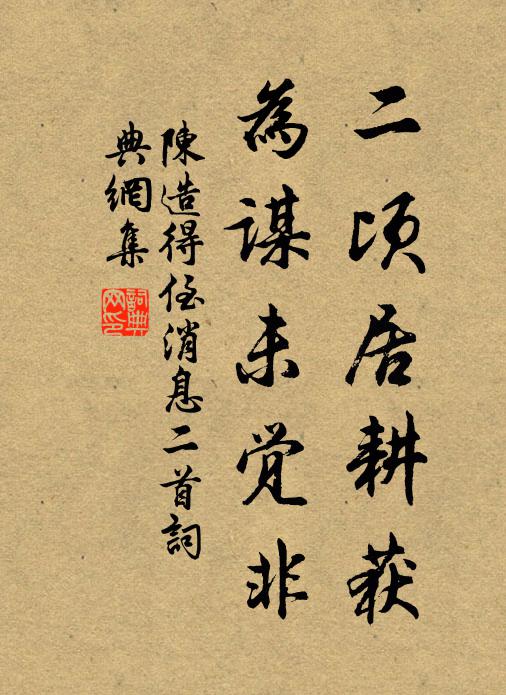 二顷居耕获
為谋未觉非
陳造得侄消息二首詞
典網集
詞典网印